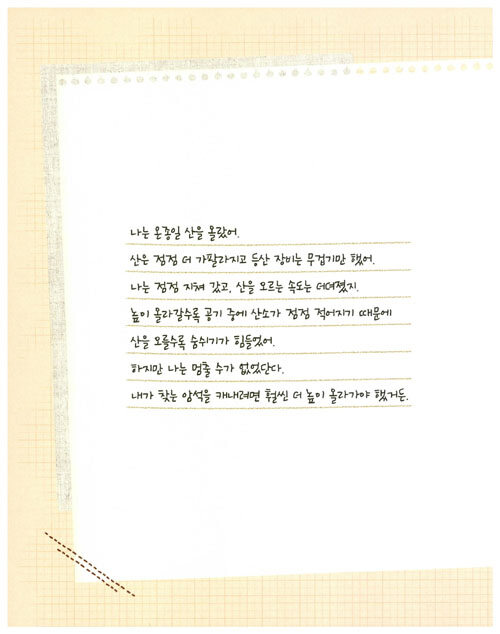 나는 온종일 산을 올랐어.
산은 점점 더 가팔라지고 등산 장비는 무겁기만 했어.
나는 점점 지쳐 갔고, 산을 오르는 속도는 더뎌졌지.
높이 올라갈수록 공기 중에 산소가 점점 적어지기 때문에
산을 오를수록 숨쉬기가 힘들었어.
하지만 나는 멈출 수가 없었단다.
내가 찾는 암석을 캐내려면 훨씬 더 높이 올라가야 했거든.